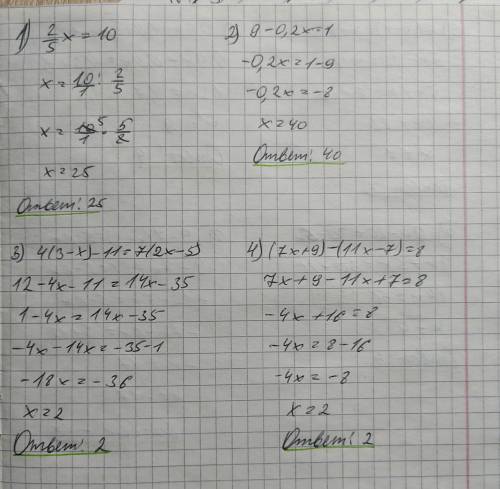 1) 2/5 x = 10
x = 10/1 : 2/5
x = 10/1 · 5/2 5
x = 25
Ответ: 25
2) 9 - 0,2x = 1
-0,2x = 1 - 9
-0,2x = -8
x = 40
Ответ: 40
3) 4(3-x) - 11 = 7(2x-5)
12 - 4x - 11 = 14x - 35
1 - 4x = 14x - 35
-4x - 14x = -35 - 1
-18x = -36
x = 2
Ответ: 2
4) (7x+9) - (11x-7) = 8
7x + 9 - 11x + 7 = 8
-4x + 16 = 8
-4x = 8 - 16
-4x = -8
x = 2
Ответ: 2